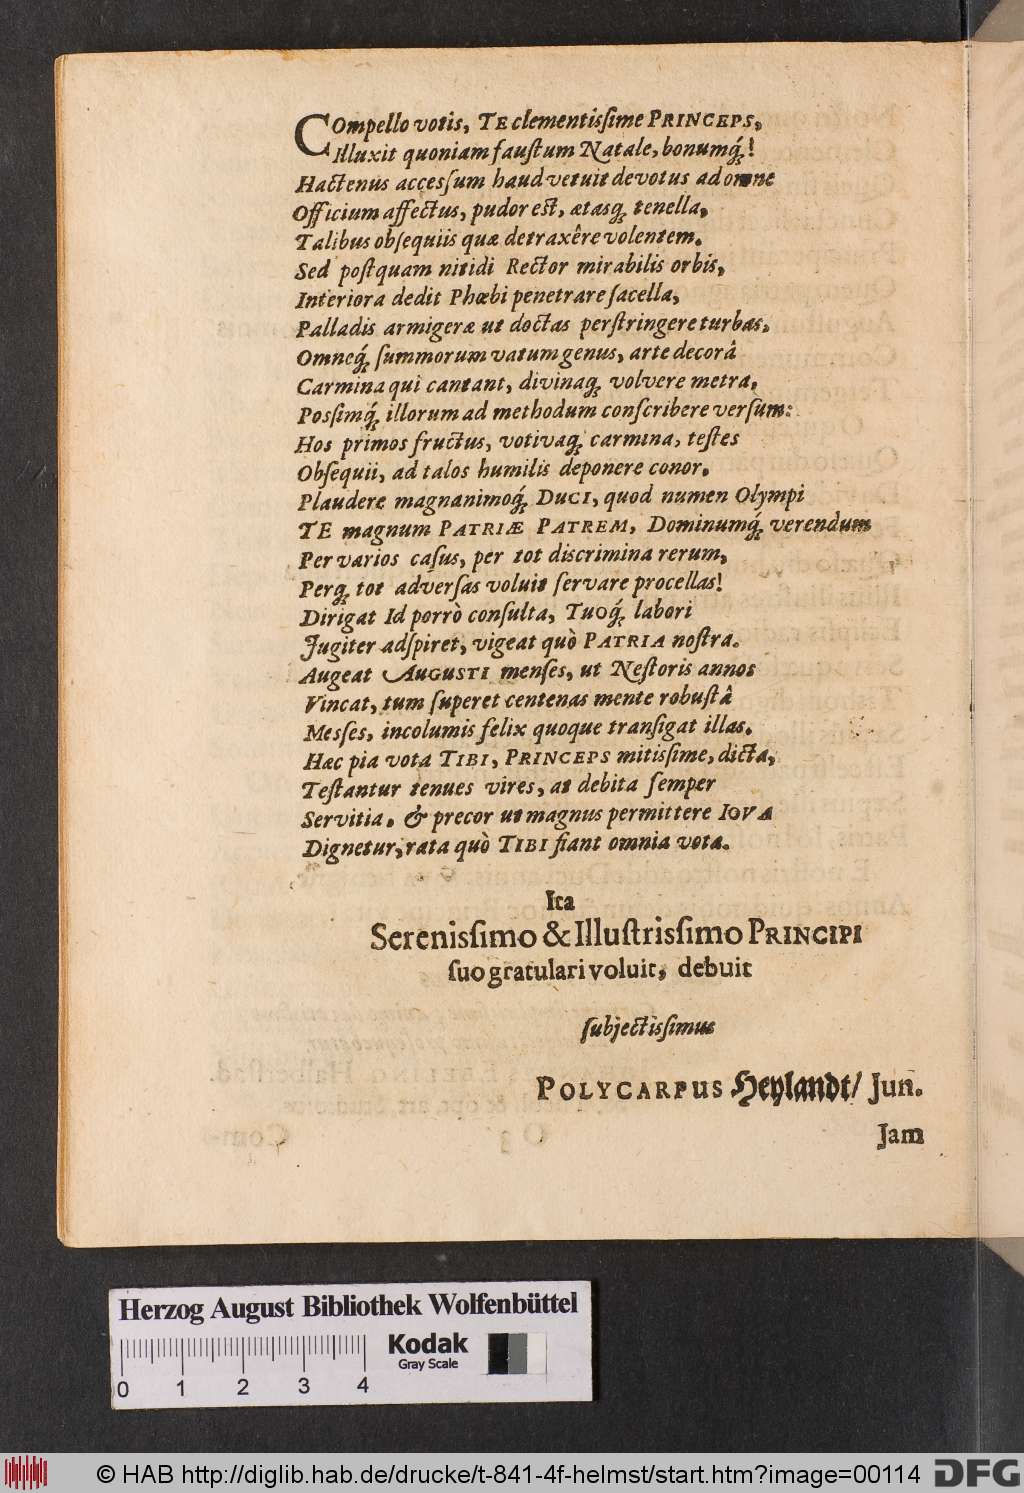 COmpello votis, TE clementissime PRINCEPS,
Illuxit quoniam faustum Natale, bonumq́;!
Hactenus accessum haud vetuit devotus ad omne
Officium affectus, pudor est, ætasq; tenella,
Talibus obsequiis quæ detraxêre volentem.
Sed postquam nitidi Rector mirabilis orbis,
Interiora dedit Phœbi penetrare sacella,
Palladis armigeræ ut doctas perstringere turbas,
Omneq́; summorum vatum genus, arte decorâ
Carmina qui cantant, divinaq; volvere metra,
Possimq́; illorum ad methodum conscribere versum:
Hos primos fructus, votivaq; carmina, testes
Obsequii, ad talos humilis deponere conor.
Plaudere magnanimoq́; DUCI, quod numen Olympi
TE magnum PATRIÆ PATREM, Dominumq́; verendum
Per varios casus, per tot discrimina rerum,
Perq; tot adversas voluit servare procellas!
Dirigat Id porrò consulta, TUOq́; labori
Jugiter adspiret, vigeat quò PATRIA nostra.
Augeat AUGUSTI menses, ut Nestoris annos
Vincat, tum superet centenas mente robustâ
Messes, incolumis felix quoque transigat illas.
Hæc pia vota TIBI, PRINCEPS mitissime, dicta,
Testantur tenues vires, at debita semper
Servitia. & precor ut magnus permittere IOVA
Dignetur, rata quò TIBI fiant omnia vota.
Ita
Serenissimo & Illustrissimo PRINCIPI
suo gratulari voluit, debuit
subjectissimus
POLYCARPUS Heylandt/ Jun.
Jam
Herzog August Bibliothek Wolfenbüttel
Kodak
Gray Scale
0 1 2 3 4
© HAB http://diglib.hab.de/drucke/t-841-4f-helmst/start.htm?image=00114
DFG